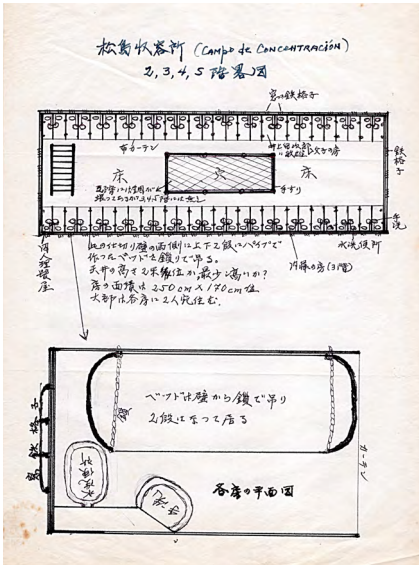 松島収容所 (CAMPO de CONCENTRACIÓN)
2,3,4,5 階畧図
窓の鉄格子
布カーテン
床
穴
床
手すり
鉄格子
手洗
水洗便所
内縁の房(3階)
此の仕切り壁の両側に上下2段にパイプで
作ったベッドを鎖りで吊る。
天井の高さ2米幾位か最少し高いか?
房の面積は250cm×170cm位
大部は各房に2人宛住む.
ベッドは壁から鎖で吊り
2段になって居る
鎖
窓鉄格子
カーテン
水洗便所
手洗
各房の平面図